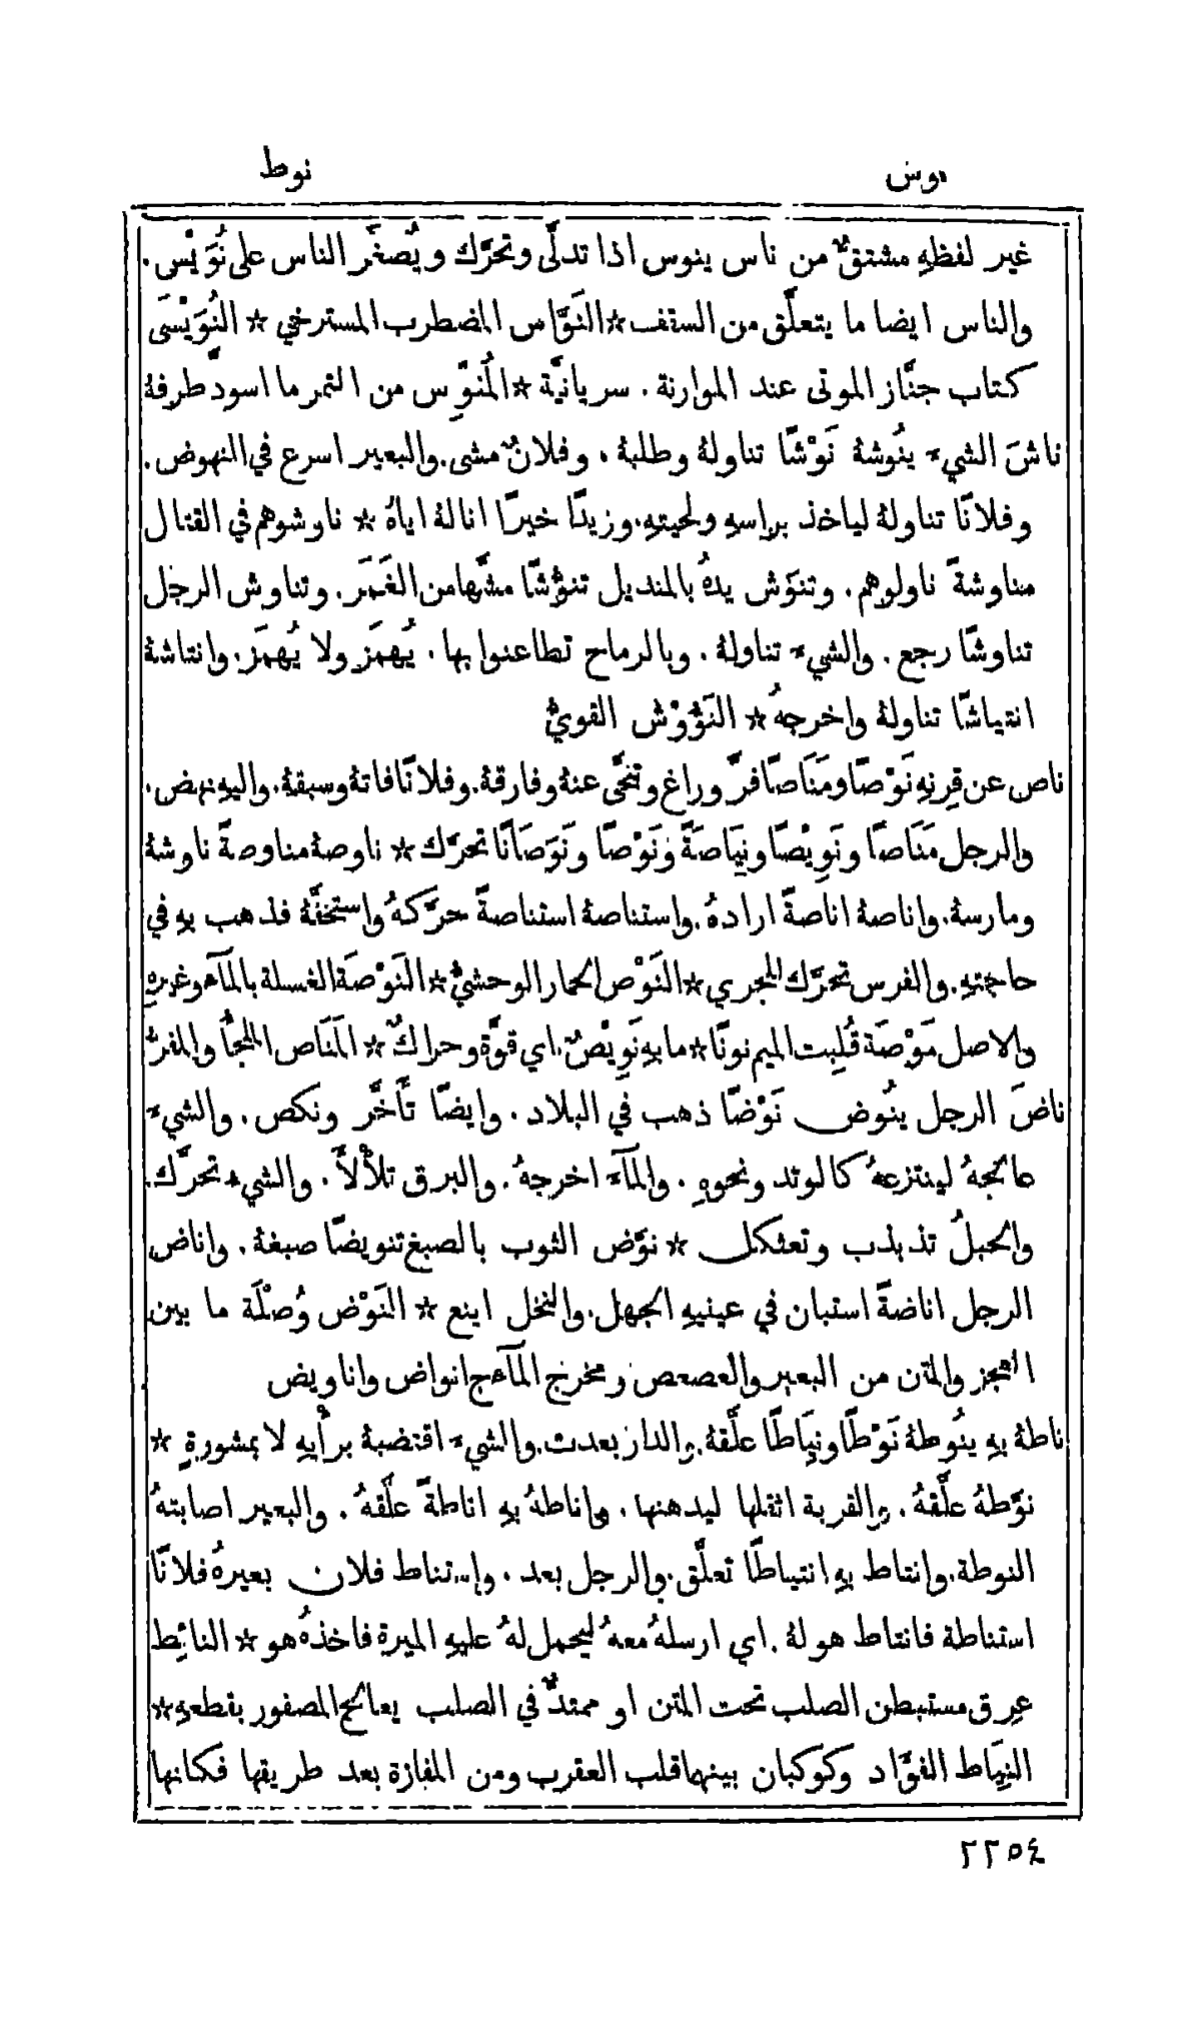 نوش
نوط
غير لفظهِ مشتقٌّ من ناس ينوس اذا تدلَّى وتحرَّك ويُصغَّر الناس على نُوَيْس.
والناس ايضا ما يتعلَّق من السقف☆النَوَّاس المضطرب المسترخي ☆ النُوَيْسَى
كتاب جنَّاز الموتى عند الموارنة . سريانيَّة ☆المُنوِّس من التمر ما اسودَّ طرفهُ
ناشَ الشيءَ ينُوشهُ نَوْشًا تناولهُ وطلبهُ . وفلانٌ مشى.والبعير اسرع في النهوض.
وفلانًا تناولهُ لياخذ براسهِ ولحيتهِ.وزيدًا خيرًا انالهُ اياهُ ☆ ناوشوهم في القتال
مناوشةً ناولوهم. وتنوَّش يدهُ بالمنديل تنوُّشًا مشَّها من الغَمَر. وتناوش الرجل
تناوشًا رجع. والشيءَ تناولهُ . وبالرماح تطاعنوا بها . يُهمَز ولا يُهمَز. وانتاشهُ
انتياشًا تناولهُ واخرجهُ☆ النَؤُوْش القويُّ
ناص عن قِرنهِ نَوْصًا ومَنَاصًا فرَّ وراغ وتنحَّى عنهُ وفارقهُ. وفلانًا فاتهُ وسبقهُ. واليهِ نهض.
والرجل مَنَاصًا ونَوِيْصًا ونِيَاصَةً ونَوْصًا ونَوَصَانًا تحرَّك☆ ناوصهُ مناوصةً ناوشهُ
ومارسهُ.واناصهُ اناصةً ارادهُ.واستناصهُ استناصةً حرَّكهُ واستخفَّهُ فذهب بهِ في
حاجتهِ.والفرس تحرَّك للجري☆النَوْص الحمار الوحشيُّ☆النَوْصَة الغسلة بالمآء وغيرهِ
والاصل مَوْصَة قُلِبت الميم نونًا☆ما بهِ نَوِيْصٌ.اي قوَّة وحراكٌ☆ المَنَاص الملجأُ والمفرُّ
ناضَ الرجل ينُوض نَوْضًا ذهب في البلاد . وايضًا تأَخَّر ونكص. والشيءَ
عالجهُ لينتزعهُ كالوتد ونحوهِ . والمآءَ اخرجهُ. والبرق تلأْلأَ . والشيءُ تحرَّك.
والحبلُ تذبذب وتعثكل ☆ نوَّض الثوب بالصبغ تنويضًا صبغهُ. واناض
الرجل اناضةً استبان في عينيهِ الجهل. والنخل اينع ☆ النَوْض وُصْلَة ما بين
العجز والمتن من البعير والعصعص ومخرج المآء ج انواض واناويض
ناطهُ بهِ ينُوطهُ نَوْطًا ونِيَاطًا علَّقهُ.والدار بعدت.والشيءَ اقتضبهُ برأْيهِ لا بمشورةٍ ☆
نوَّطهُ علَّقهُ. والقربة اثقلها ليدهنها. واناطهُ بهِ اناطةً علَّقهُ. والبعير اصابتهُ
النوطة.وانتاط بهِ انتياطًا تعلَّق.والرجل بعد . واستناط فلان بعيرهُ فلانًا
استناطة فانتاط هو لهُ .اي ارسلهُ معهُ ليحمل لهُ عليهِ الميرة فاخذهُ هو ☆ النائِط
عِرق مستبطن الصلب تحت المتن او ممتدٌّ في الصلب يعالج المصفور بقطعهِ☆
النِيَاط الفؤَاد وكوكبان بينهما قلب العقرب ومن المفازة بعد طريقها فكانها
٢٢٥٤